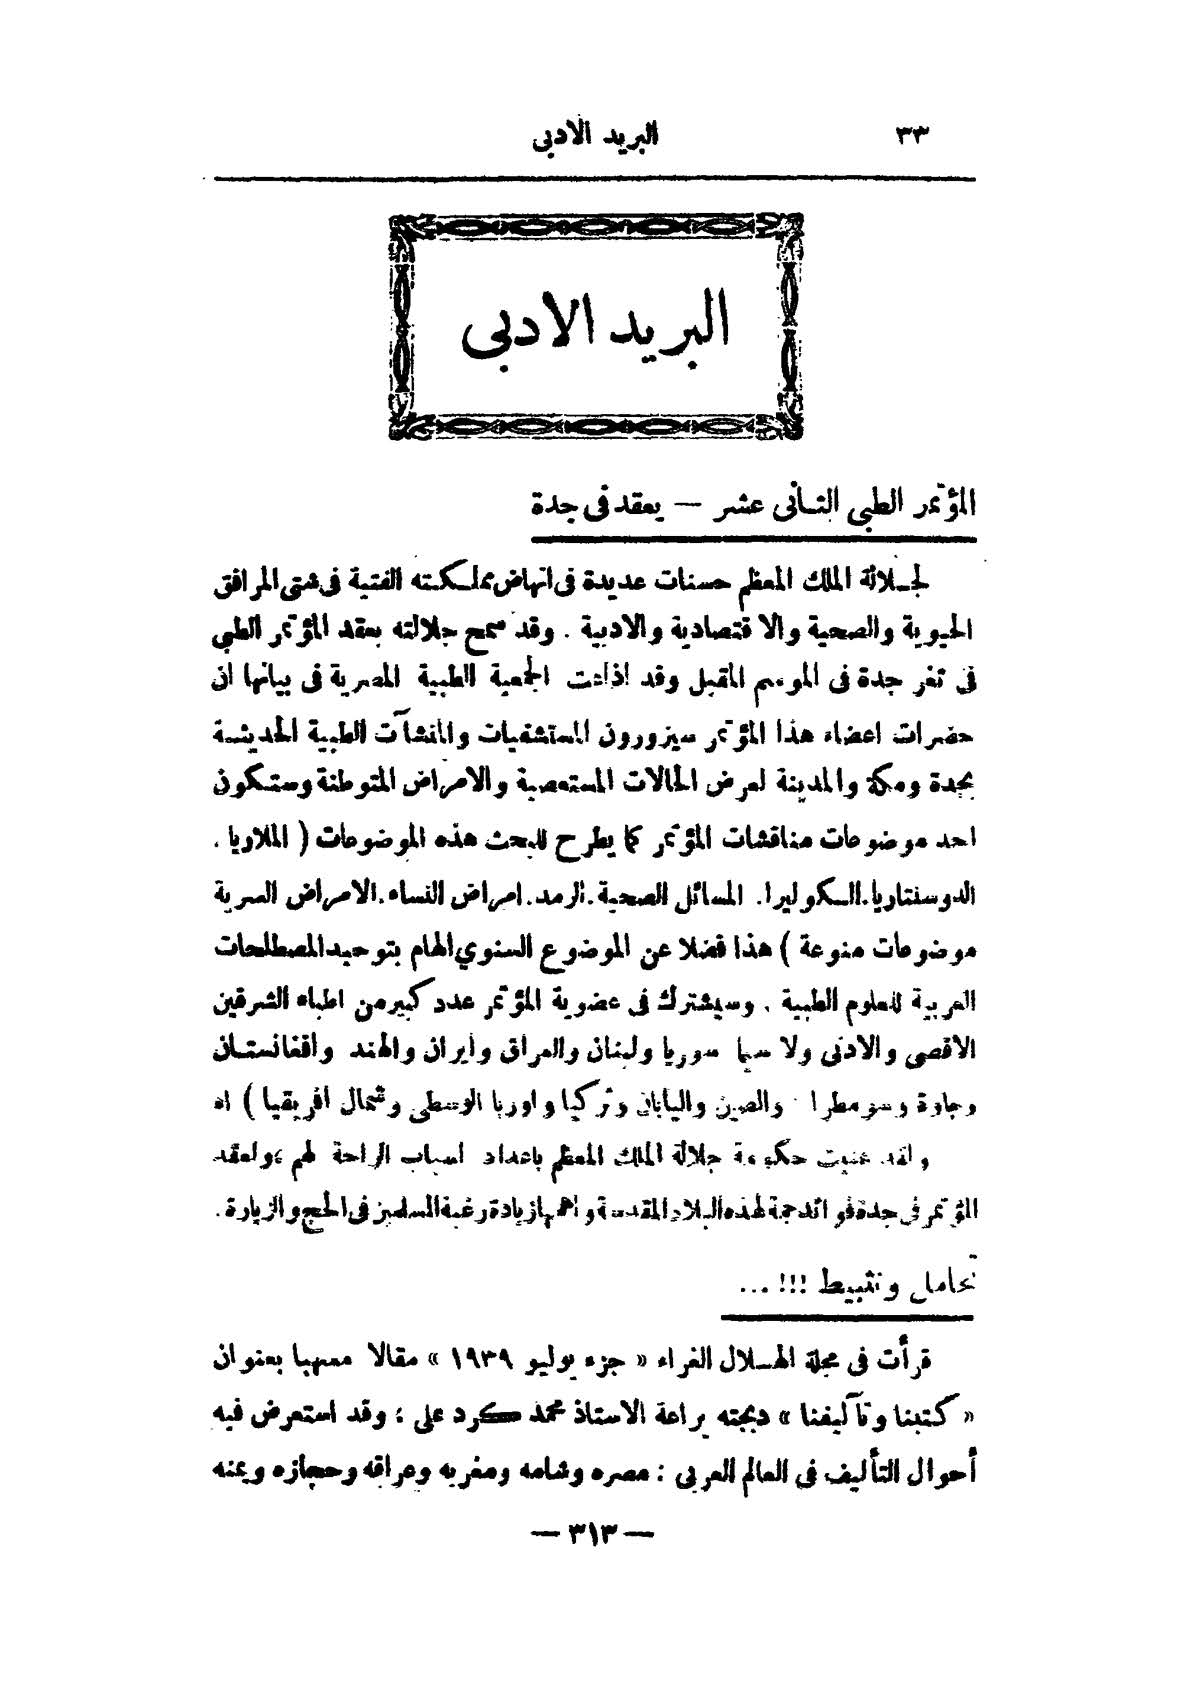 ٣٣ البريد الادبى
البريد الادبى
المؤتمر الطبى الثانى عشر — يعقد فى جدة
لجلالة الملك المعظم حسنات عديدة فى انهاض مملكته الفتية فى شتى المرافق
الحيوية والصحية والاقتصادية والادبية . وقد سمح جلالته بعقد المؤتمر الطبى
فى ثغر جدة فى الموسم المقبل وقد اذاعت الجمعية الطبية المصرية فى بيانها ان
حضرات اعضاء هذا المؤتمر سيزورون المستشفيات والمنشآت الطبية الحديثة
بجدة ومكة والمدينة لعرض الحالات المستعصية والامراض المتوطنة وستكون
احد موضوعات مناقشات المؤتمر كما يطرح للبحث هذه الموضوعات ( الملاريا .
الدوسنتاريا.السكوليرا. المسائل الصحية.الرمد.امراض النساء.الامراض السرية
موضوعات منوعة ) هذا فضلا عن الموضوع السنوي الهام بتوحيد المصطلحات
العربية للعلوم الطبية . وسيشترك فى عضوية المؤتمر عدد كبير من اطباء الشرقين
الاقصى والادنى ولا سيما سوريا ولبنان والعراق وايران والهند وافغانستان
وجاوة وسومطرا والصين واليابان وتركيا واوربا الوسطى وشمال افريقيا ) اه
ولقد عنيت حكومة جلالة الملك المعظم باعداد اسباب الراحة لهم ،ولعقد
المؤتمر فى جدة فوائد جمة لهذه البلاد المقدسة واهمها زيادة رغبة المسلمين فى الحج والزيارة .
تحامل وتثبيط !!! ...
قرأت فى مجلة الهلال الغراء « جزء يوليو ١٩٣٩ » مقالا مسهبا بعنوان
« كتبنا وتآليفنا » دبجته يراعة الاستاذ محمد كرد على ؛ وقد استعرض فيه
أحوال التأليف فى العالم العربى : مصره وشامه ومغربه وعراقه وحجازه ويمنه
— ٣١٣ —